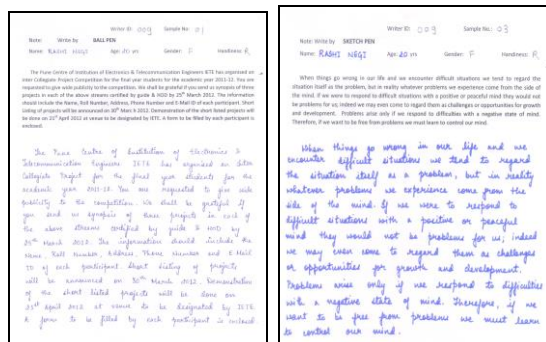 Writer ID: 009 Sample No: 01
Note: Write by BALL PEN
Name: RASHI NEGI Age: 20 yrs Gender: F Handiness: R
The Pune Centre of Institution of Electronics & Telecommunication Engineers IETE has organised an
Inter Collegiate Project Competition for the final year students for the academic year 2011-12. You are
requested to give wide publicity to the competition. We shall be grateful if you send us synopsis of three
projects in each of the above streams certified by guide & HOD by 25th March 2012. The information
should include the Name, Roll Number, Address, Phone Number and E-Mail ID of each participant. Short
listing of projects will be announced on 30th March 2012. Demonstration of the short listed projects will
be done on 21st April 2012 at venue to be designated by IETE. A form to be filled by each participant is
enclosed.
The Pune Centre of Institution of Electronics &
Telecommunication Engineers IETE has organised an Inter
Collegiate Project for the final year students for the
academic year 2011-12. You are requested to give wide
publicity to the competition. We shall be grateful if
you send us synopsis of three projects in each of
the above streams certified by guide & HOD by
25th March 2012. The information should include the
Name, Roll Number, Address, Phone Number and E-Mail
ID of each participant. Short listing of projects
will be announced on 30th March 2012. Demonstration
of the short listed projects will be done on
21st April 2012 at venue to be designated by IETE.
A form to be filled by each participant is enclosed.
Writer ID: 009 Sample No.: 03
Note: Write by SKETCH PEN
Name: RASHI NEGI Age: 20 yrs Gender: F Handiness: R
When things go wrong in our life and we encounter difficult situations we tend to regard the
situation itself as the problem, but in reality whatever problems we experience come from the side of
the mind. If we were to respond to difficult situations with a positive or peaceful mind they would not
be problems for us; indeed we may even come to regard them as challenges or opportunities for growth
and development. Problems arise only if we respond to difficulties with a negative state of mind.
Therefore, if we want to be free from problems we must learn to control our mind.
When things go wrong in our life and we
encounter difficult situations we tend to regard
the situation itself as a problem, but in reality
whatever problems we experience come from the
side of the mind. If we were to respond to
difficult situations with a positive or peaceful
mind they would not be problems for us; indeed
we may even come to regard them as challenges
or opportunities for growth and development.
Problems arise only if we respond to difficulties
with a negative state of mind. Therefore, if we
want to be free from problems we must learn
to control our mind.